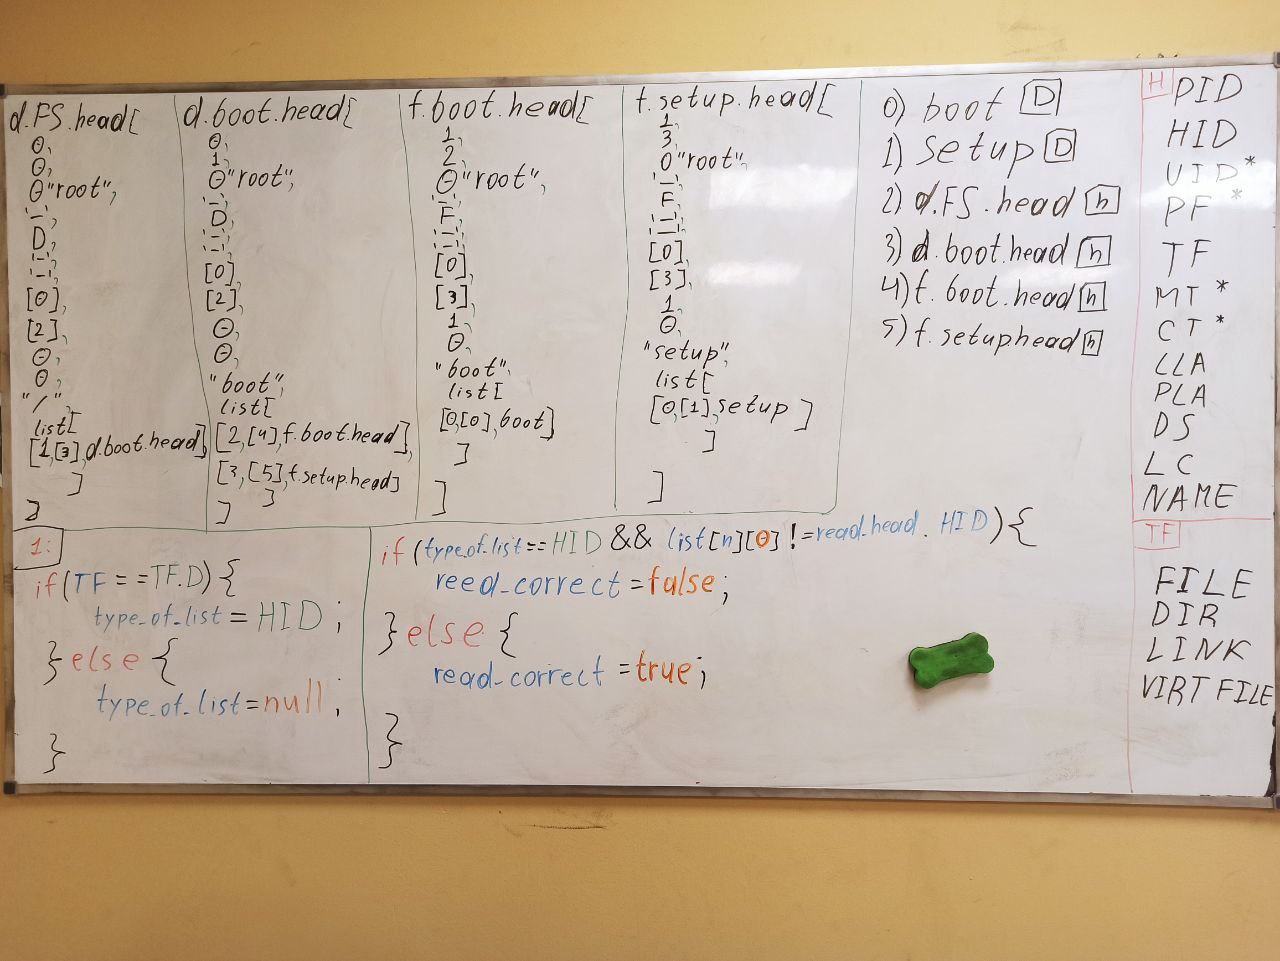 d.FS.head[
0,
0,
0"root",
"_",
D,
"_",
"_",
[0],
[2],
0,
0,
"/",
list[
[1,[3],d.boot.head],
]
]
d.boot.head[
0,
1,
0"root",
"_",
D,
"_",
"_",
[0],
[2],
0,
0,
"boot",
list[
[2,[4],f.boot.head],
[3,[5],f.setup.head]
]
]
f.boot.head[
1,
2,
0"root",
"_",
F,
"_",
"_",
[0],
[3],
1,
0,
"boot",
list[
[0,[0],boot]
]
]
f.setup.head[
1,
3,
0"root",
"_",
F,
"_",
"_",
[0],
[3],
1,
0,
"setup",
list[
[0,[1],setup]
]
]
0) boot D
1) setup D
2) d.FS.head h
3) d.boot.head h
4) f.boot.head h
5) f.setuphead h
H
PID
HID
UID*
PF*
TF
MT*
CT*
LLA
PLA
DS
LC
NAME
TF
FILE
DIR
LINK
VIRT FILE
1:
if(TF==TF.D){
type_of_list=HID;
}else{
type_of_list=null;
}
if(type_of_list==HID && list[n][0]!=read_head.HID){
reed_correct=false;
}else{
read_correct=true;
}